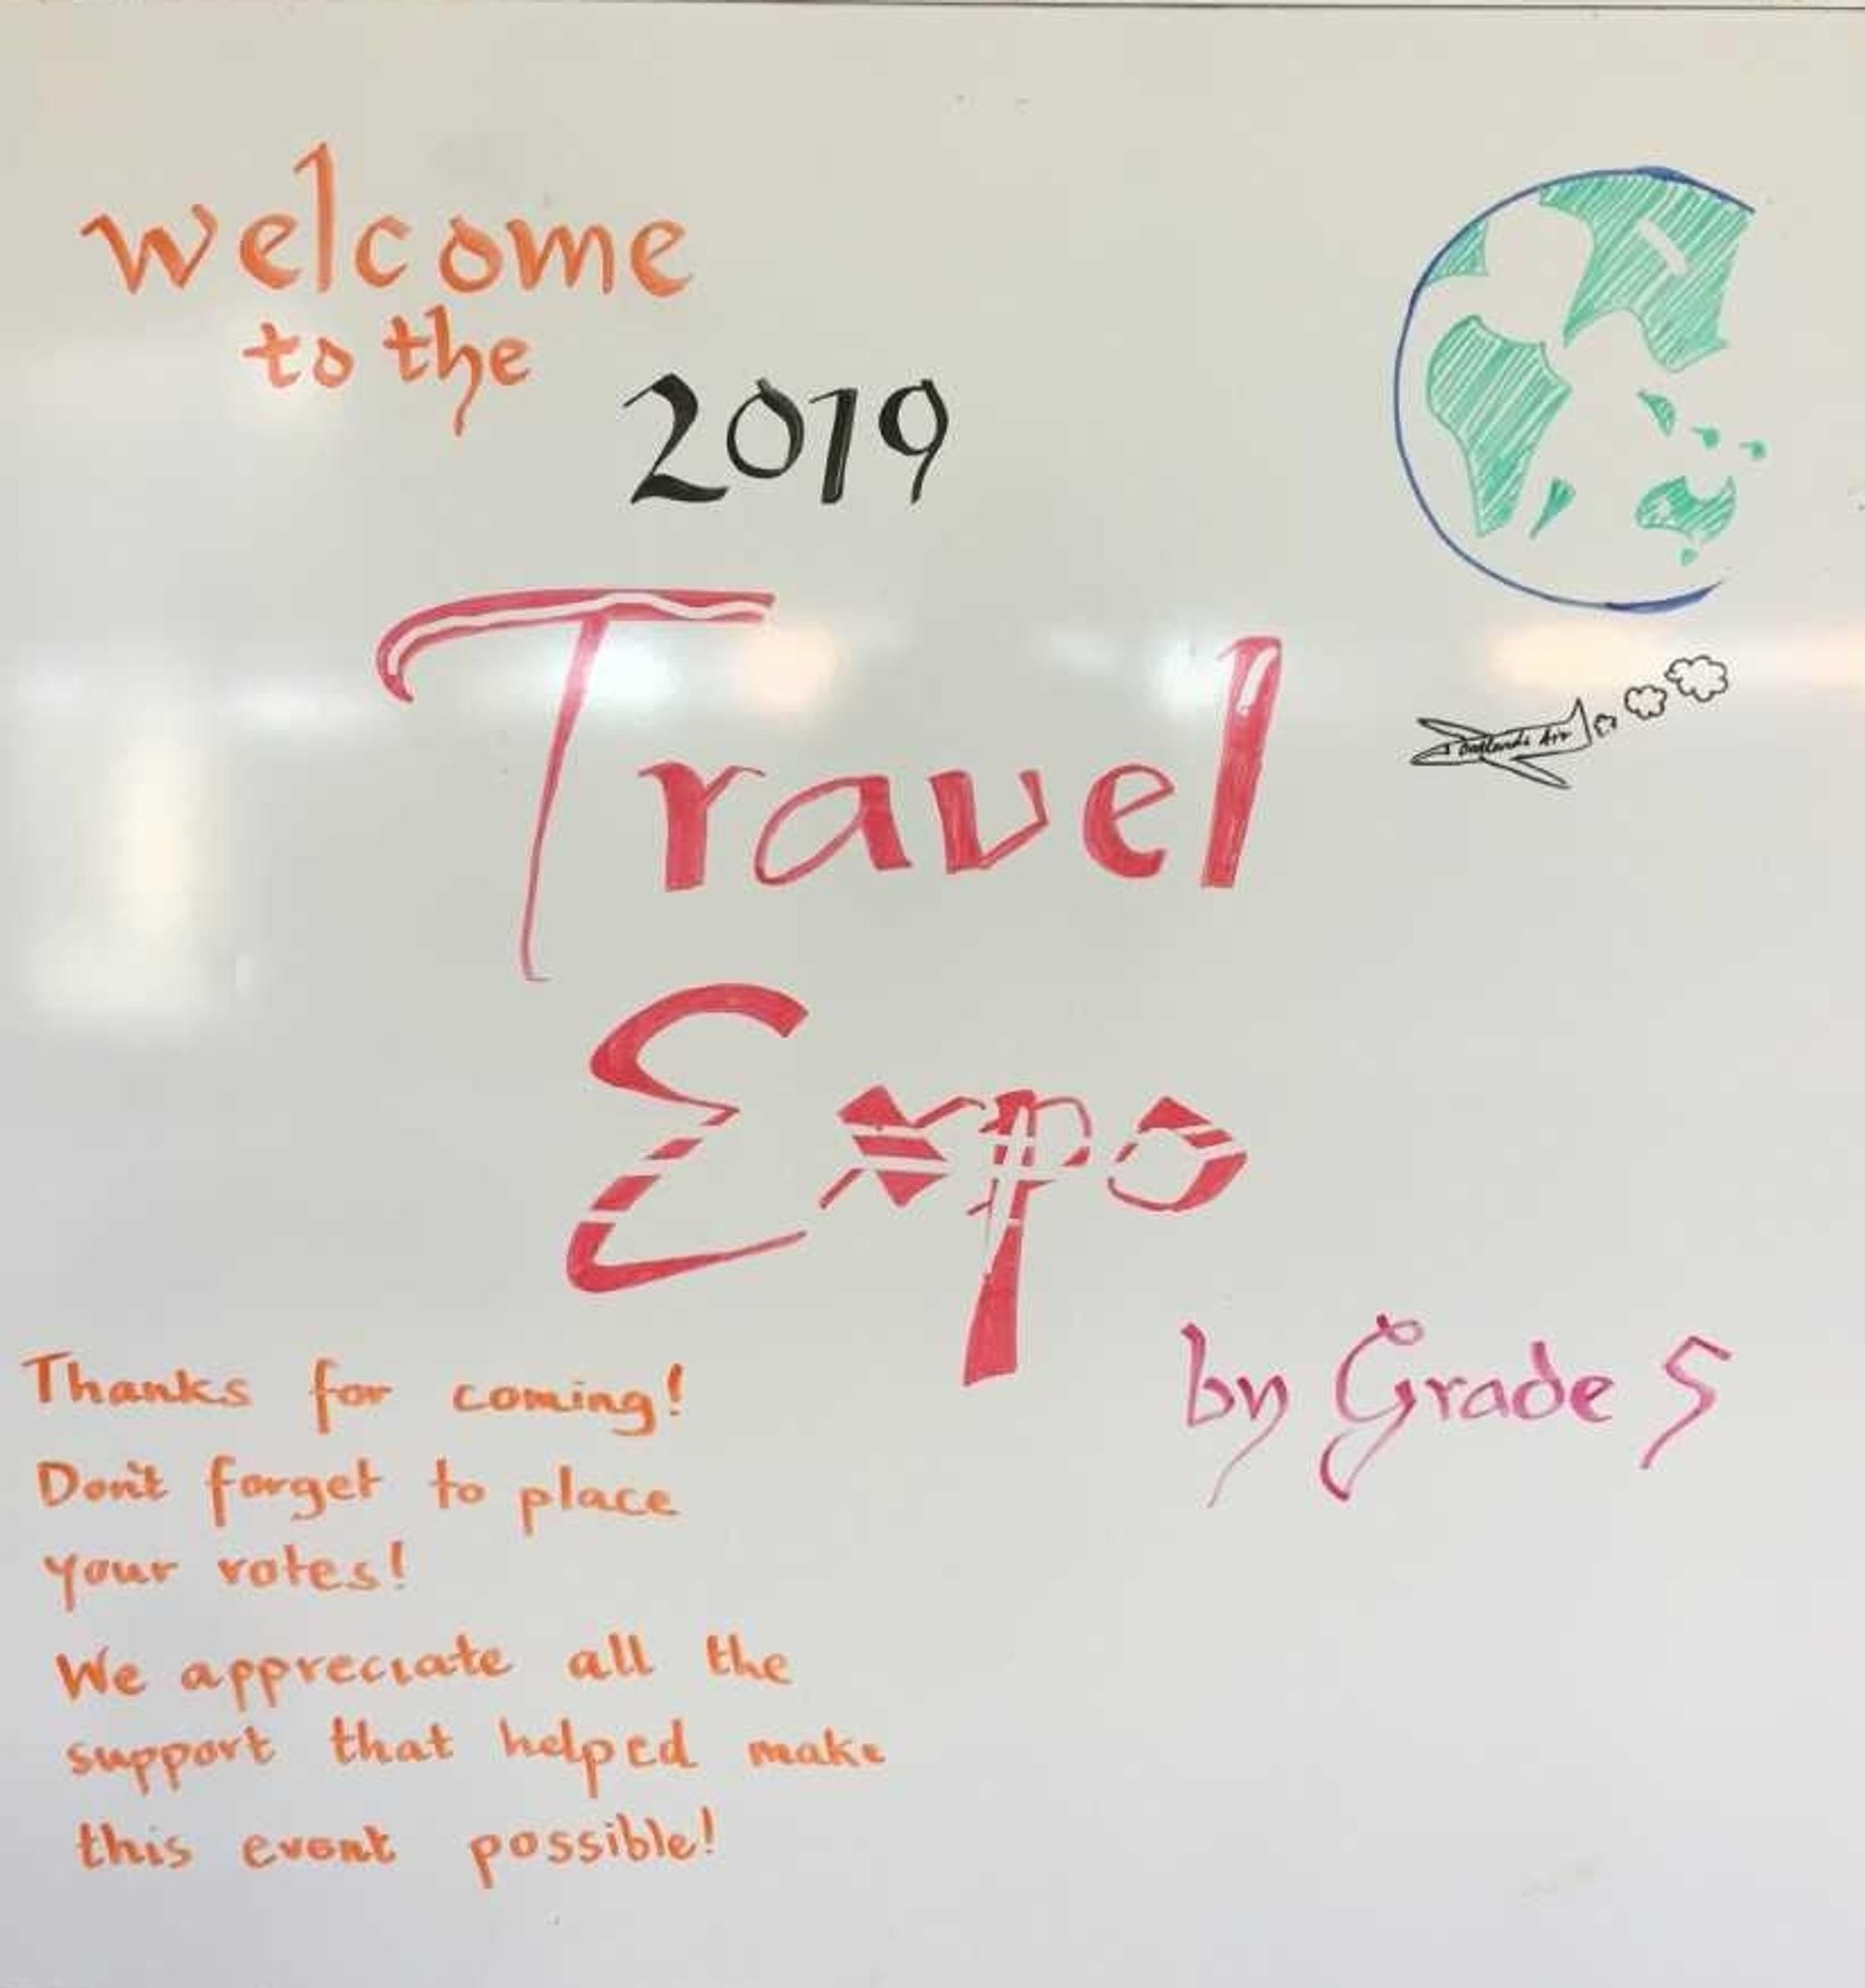 welcome
to the
2019
Travel
Oaklands Air
Expo
by Grade 5
Thanks for coming!
Don't forget to place
your votes!
We appreciate all the
support that helped make
this event possible!